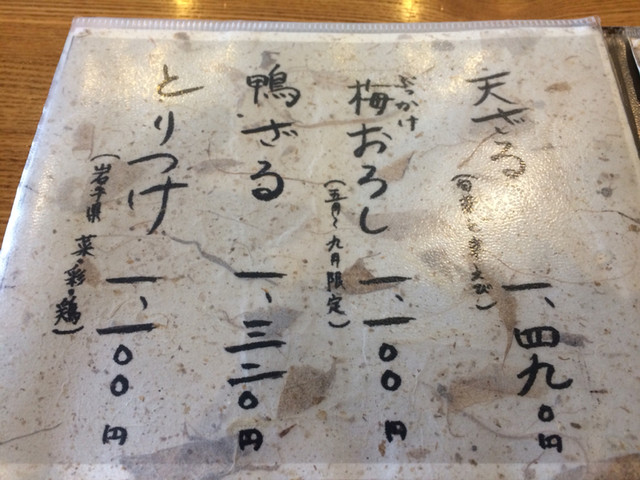 天ざる
一、四九〇円
ぶっかけ
梅おろし
(五月〜九月限定)
一、一〇〇円
鴨ざる
一、三二〇円
とりつけ
(岩手県 菜・彩・鶏)
一、一〇〇円